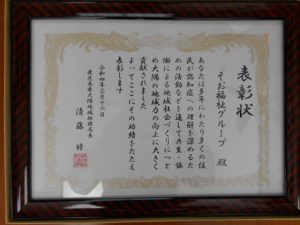 表彰状
そお福祉グループ 殿
あなたは多年にわたり多くの住
民が認知症への理解を深めるた
めの活動などを通して共生・協
働による地域社会づくりにつと
め大隅の地域力の向上に大きく
貢献されました
よってここにその功績をたたえ
表彰します
令和四年三月十六日
鹿児島県大隅地域振興局長
清藤 修